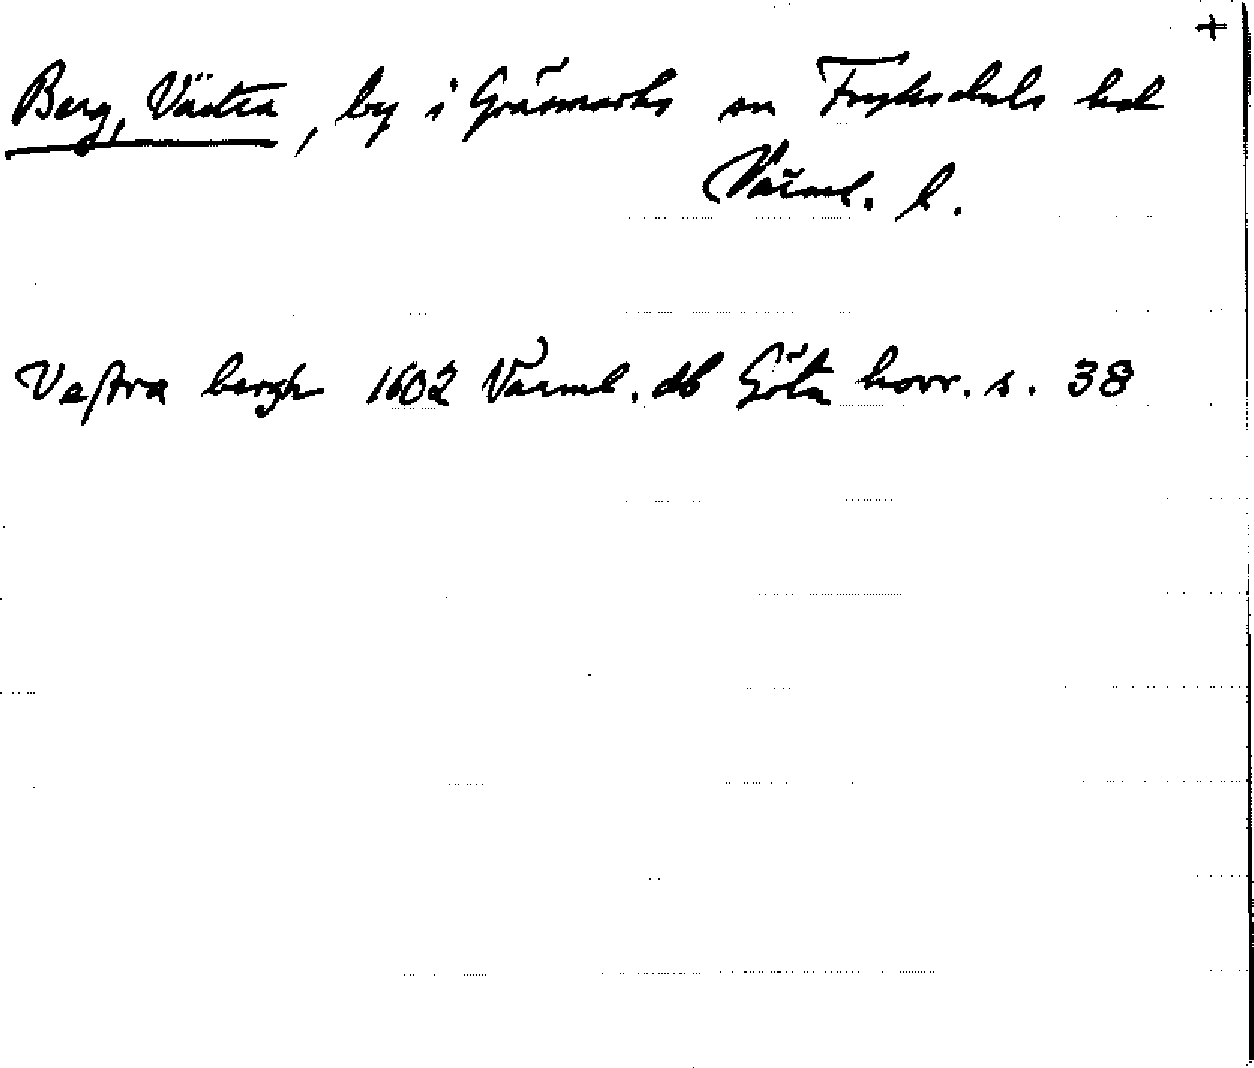 +
Berg, Västra, by i Gräsmarks sn Fryksdals hd
Värml. l.
Vaſtra bergh 1602 Värml. db Göta hovr. s. 38